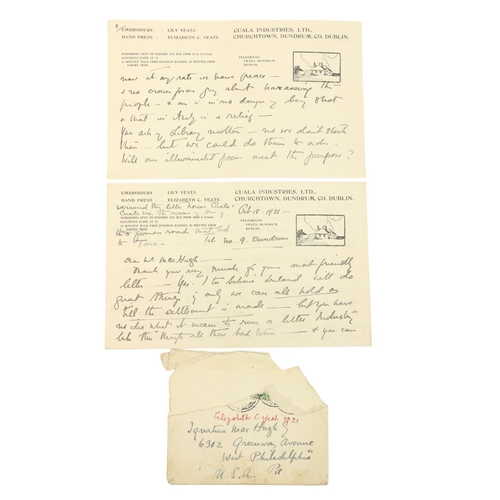 2/ EMBROIDERY . LILY YEATS.
HAND PRESS . ELIZABETH C. YEATS.
CUALA INDUSTRIES, LTD.,
CHURCHTOWN, DUNDRUM, CO. DUBLIN.
TELEGRAMS
CUALA, DUNDRUM,
DUBLIN
now at any rate we have peace —
& no crown forces going about harassing the
people — & one is in no danger of being shot
& that in itself is a relief —
You ask of Library mottoes — no we don't stock
them — but we could do them to order.
Will our illuminated poem meet the purpose?
EMBROIDERY . LILY YEATS.
HAND PRESS . ELIZABETH C. YEATS.
CUALA INDUSTRIES, LTD.,
CHURCHTOWN, DUNDRUM, CO. DUBLIN.
Oct 18. 1921 —
TELEGRAMS
CUALA, DUNDRUM,
DUBLIN
to Tara
Tel. no 9. Dundrum
Dear Mr MacHugh —
Thank you very much for your most friendly
letter — Yes I too believe Ireland will do
great things if only we can all hold on
till the settlement is made — but you have
no idea what it means to run a little Industry
like this through all these bad years — & you can
Elizabeth C Yeats 1921
Ignatius MacHugh Esq
6302 Greenway Avenue
West Philadelphia
U.S.A. Pa